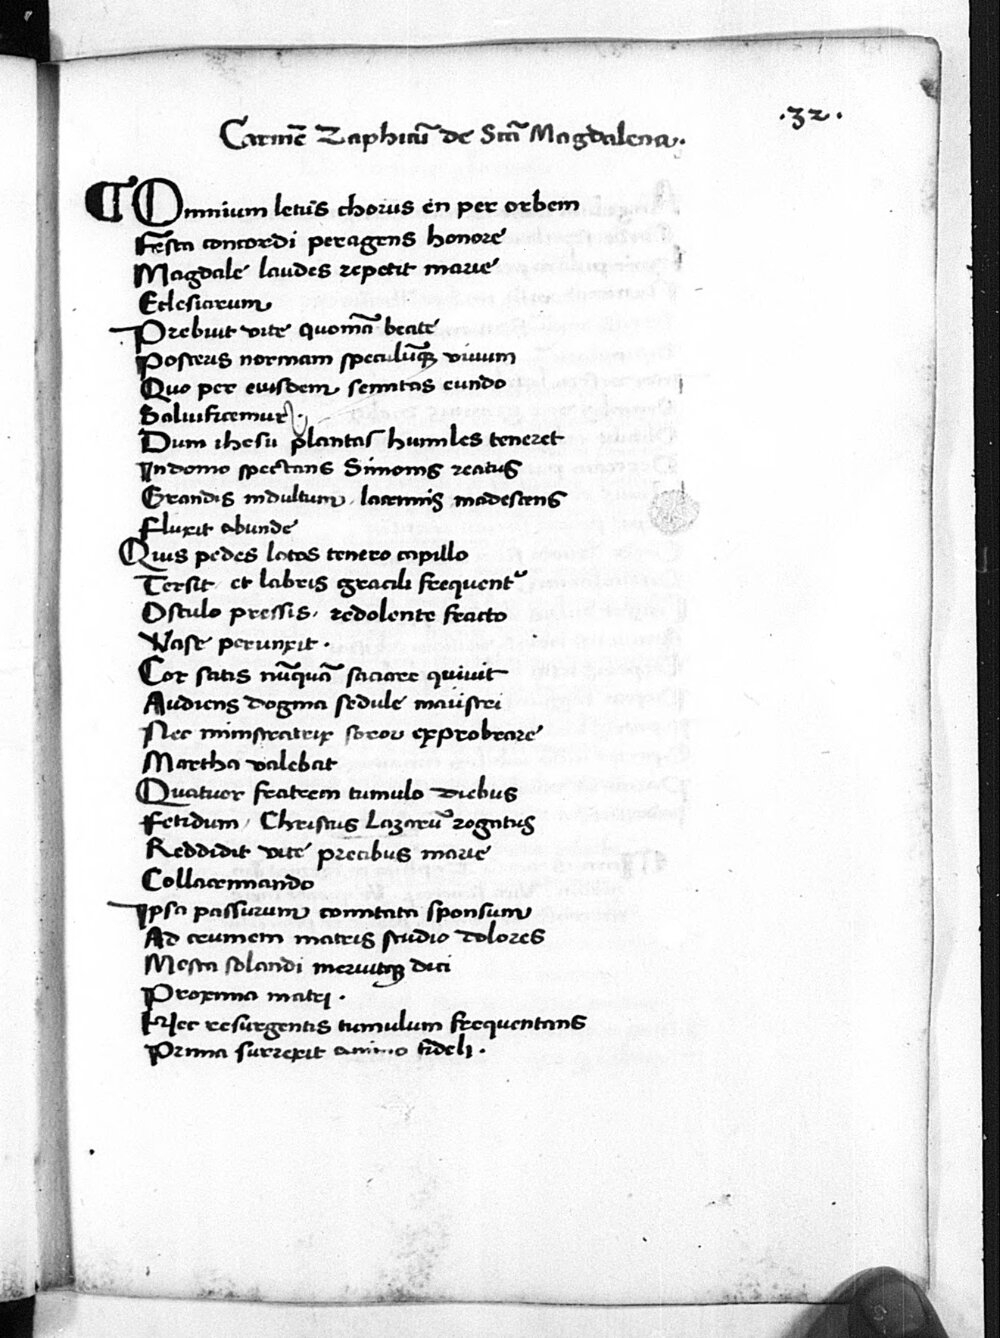 .32.
Carmē Zaphicū de Sctā Magdalena.
Omnium letus chorus en per orbem
Festa concordi peragens honore
Magdale laudes repetit marie
Eclesiarum
Prebuit vite quoniā beate
Posteris normam speculūq; viuum
Quo per eiusdem semitas eundo
Saluificemur.
Dum ihesu plantas humiles teneret
In domo spectans Simonis reatus
Grandis indultum, lacrimis madescens
Fluxit abunde
Quis pedes lotos tenero capillo
Tersit et labris gracili frequentˀ
Osculo pressis, redolente fracto
Vase perunxit.
Cor satis nūquā saciare quiuit
Audiens dogma sedule maiistri
Nec ministratrix soror exprobrare
Martha valebat
Quatuor fratrem tumulo diebus
Fetidum, Christus Lazarū rogatus
Reddidit vite precibus marie
Collacrimando
Ipsa passurum comitata sponsum
Ad crucmem matris studio dolores
Mesta solandi meruitq; dici
Proxima matri.
Hec resurgentis tumulum frequentans
Prima surrexit animo fideli.